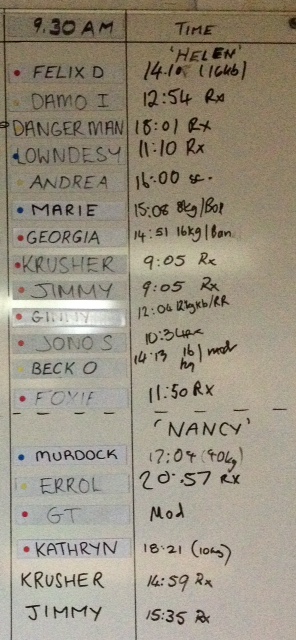 9.30 AM TIME
'HELEN'
FELIX D 14.10 (16kb)
DAMO I 12:54 Rx
DANGERMAN 18:01 Rx
LOWNDESY 11:10 Rx
ANDREA 16:00 sc.
MARIE 15:08 8kg/Box
GEORGIA 14:51 16kg/Ban
KRUSHER 9:05 Rx
JIMMY 9:05 Rx
GINNY 12:04 12kgkb/RR
JONO S 10:34 Rx
BECK O 14:13 16kg/mod
FOXIE 11:50 RX
'NANCY'
MURDOCK 17:04 (40kg)
ERROL 20:57 RX
GT Mod
KATHRYN 18:21 (10kg)
KRUSHER 14:59 Rx
JIMMY 15:35 Rx